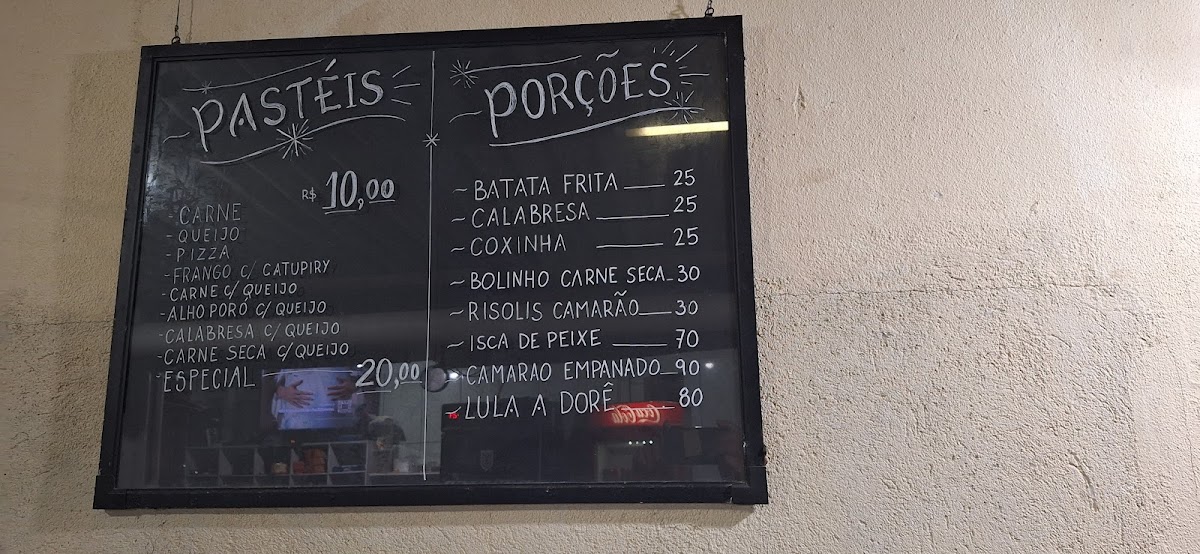 PASTÉIS
R$ 10,00
- CARNE
- QUEIJO
- PIZZA
- FRANGO C/ CATUPIRY
- CARNE C/ QUEIJO
- ALHO PORÓ C/ QUEIJO
- CALABRESA C/ QUEIJO
- CARNE SECA C/ QUEIJO
- ESPECIAL 20,00
PORÇÕES
~ BATATA FRITA ___ 25
~ CALABRESA ___ 25
~ COXINHA ___ 25
~ BOLINHO CARNE SECA _ 30
~ RISOLIS CAMARÃO ___ 30
~ ISCA DE PEIXE ___ 70
~ CAMARAO EMPANADO _ 90
~ LULA A DORÊ ___ 80
Coca-Cola